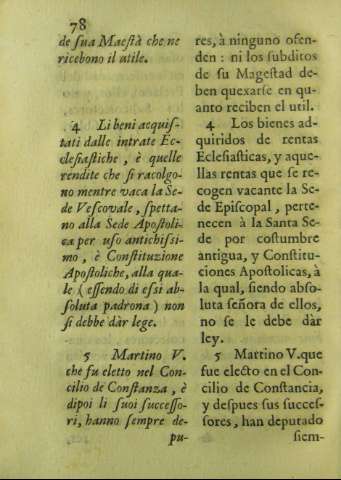 78
de ſua Maeſtà che ne
ricebono il utile.
4 Li beni acquiſ-
tati dalle intrate Ec-
cleſiaſtiche, è quelle
rendite che ſi racolgo-
no mentre vaca la Se-
de Veſcovale, ſpetta-
no alla Sede Apoſtoli-
ca per uſo antichiſſi-
mo, è Conſtituzione
Apoſtoliche, alla qua-
le (eſſendo di eſſi ab-
ſoluta padrona) non
ſi debbe dàr lege.
5 Martino V.
che fu eletto nel Con-
cilio de Conſtanza, è
dipoi li ſuoi ſucceſſo-
ri, hanno ſempre de-
pu-
res, à ninguno ofen-
den: ni los ſubditos
de ſu Mageſtad de-
ben quexarſe en qu-
anto reciben el util.
4 Los bienes ad-
quiridos de rentas
Eclefiaſticas, y aque-
llas rentas que ſe re-
cogen vacante la Se-
de Epiſcopal, perte-
necen à la Santa Se-
de por coſtumbre
antigua, y Conſtitu-
ciones Apoſtolicas, à
la qual, ſiendo abſo-
luta ſeñora de ellos,
no ſe le debe dàr
ley.
5 Martino V. que
fue electo en el Con-
cilio de Conſtancia,
y deſpues ſus ſuceſ-
ſores, han deputado
ſiem-